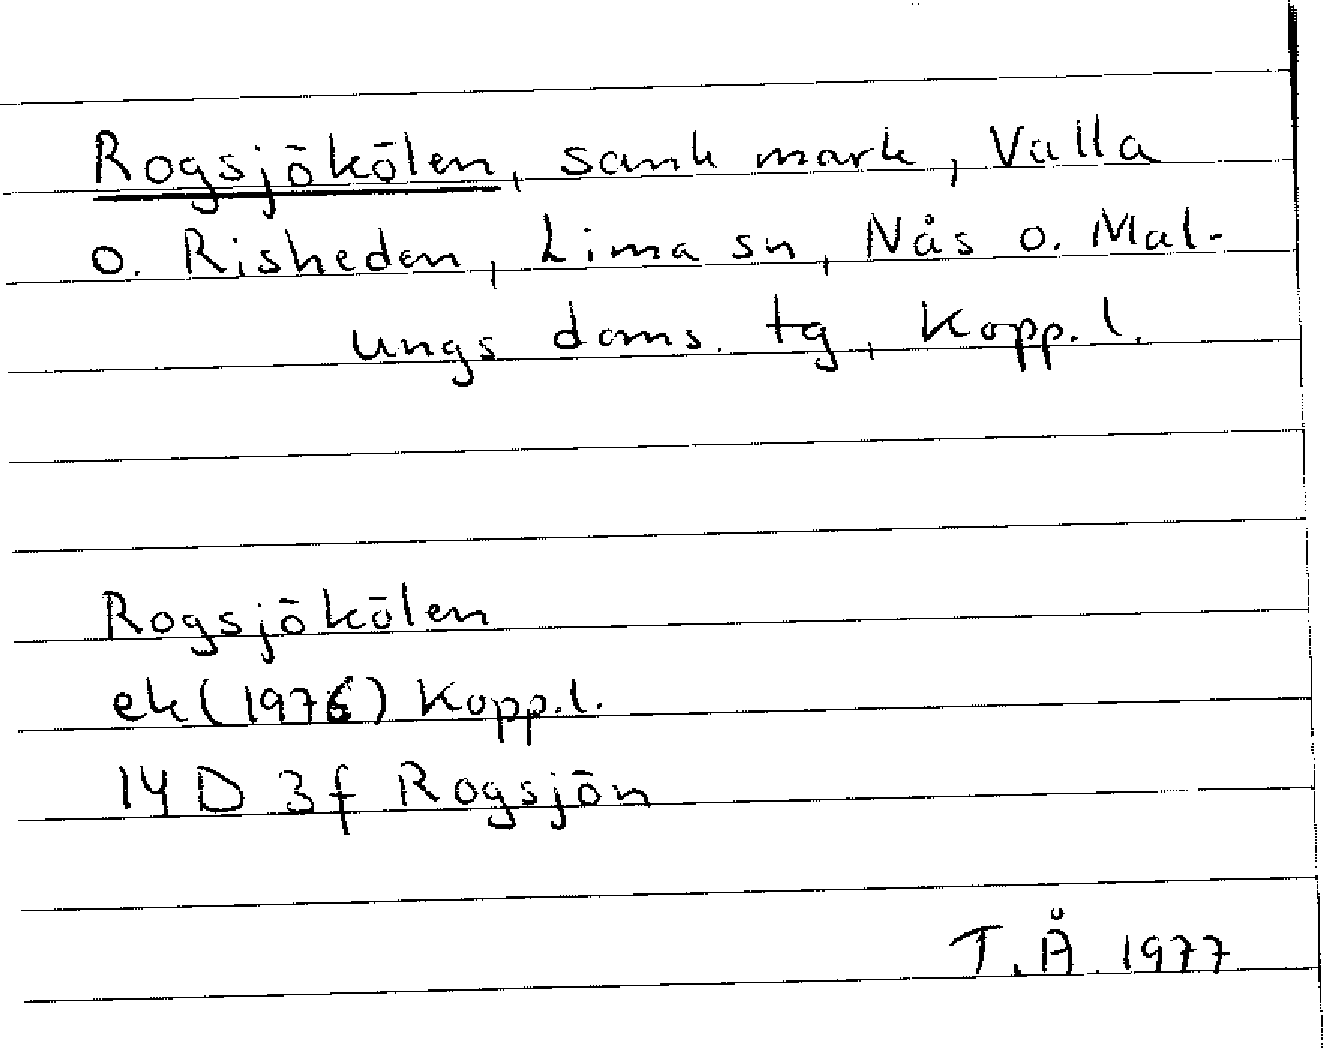 Rogsjökölen, sank mark, Valla
o. Risheden, Lima sn, Nås o. Mal-
ungs doms. tg, Kopp. l.
Rogsjökölen
ek (1976) Kopp. l.
14 D 3f Rogsjön
T.Å. 1977